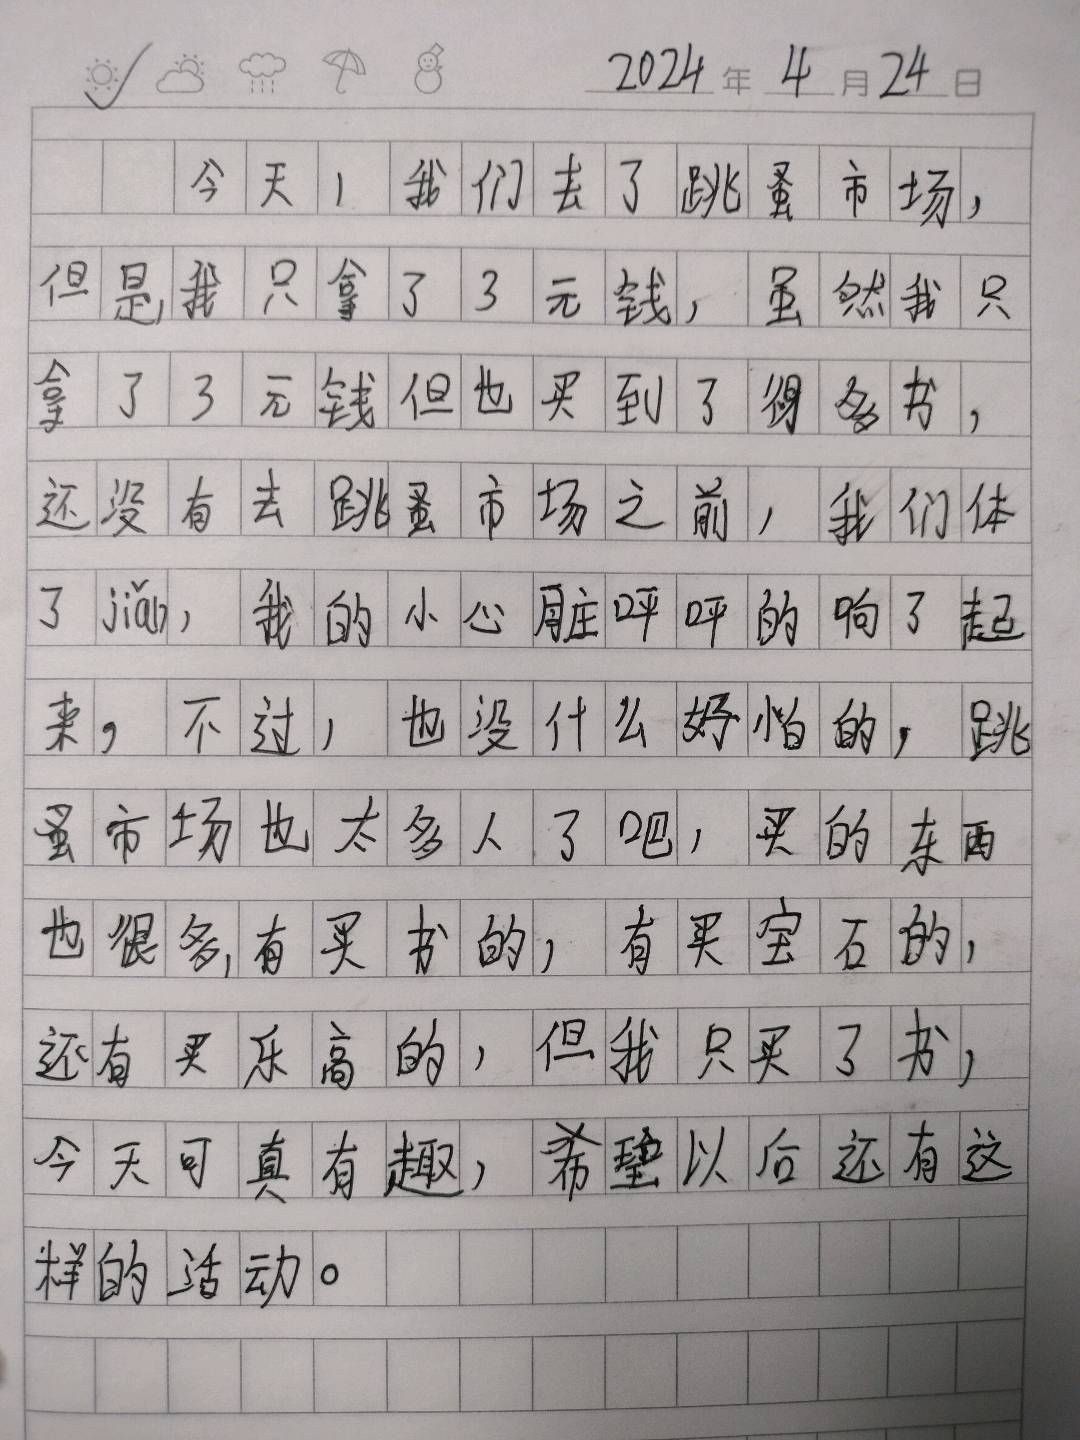 2024年 4月24日
今天，我们去了跳蚤市场，
但是，我只拿了3元钱，虽然我只
拿了3元钱但也买到了很多书，
还没有去跳蚤市场之前，我们体
了jiǎn，我的小心脏呯呯的响了起
来，不过，也没什么好怕的，跳
蚤市场也太多人了吧，买的东西
也很多，有买书的，有买宝石的，
还有买乐高的，但我只买了书，
今天可真有趣，希望以后还有这
样的活动。